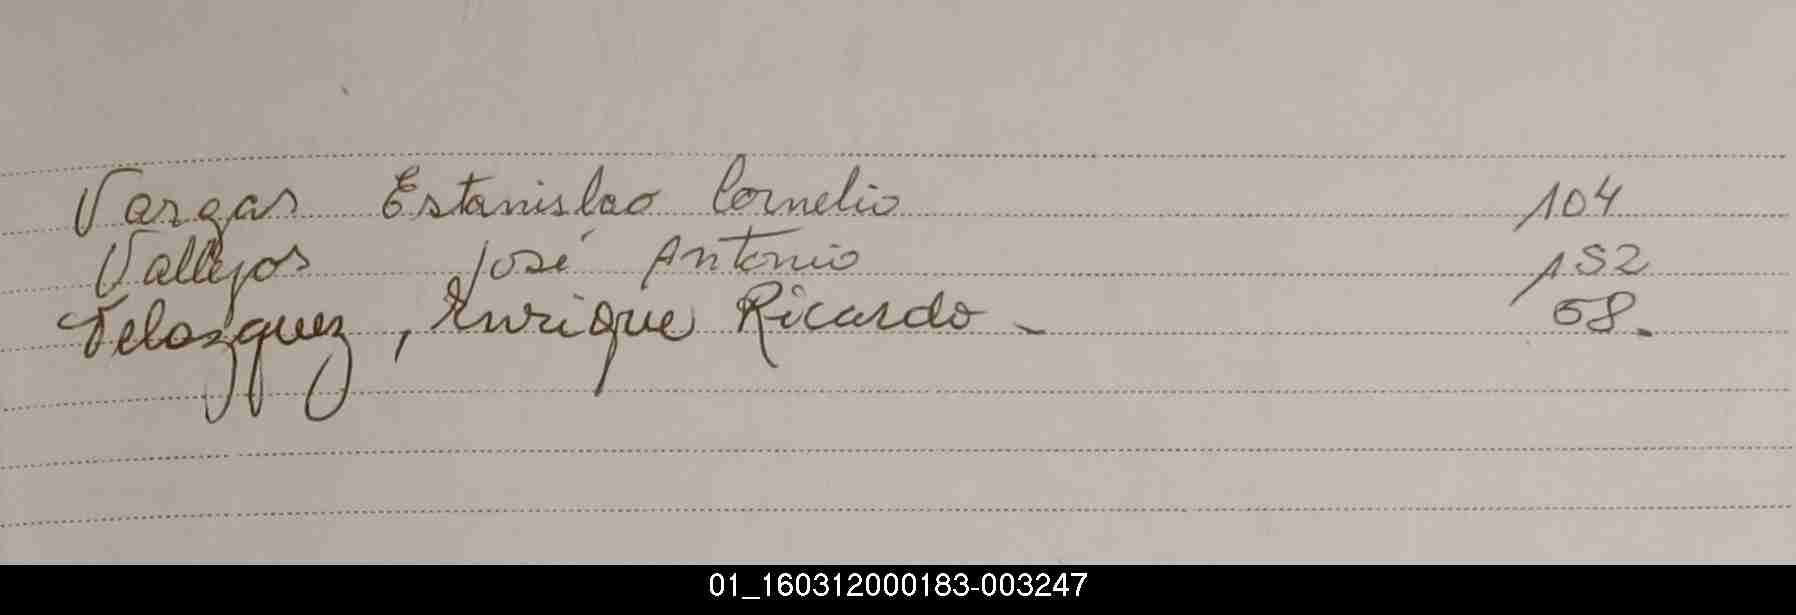 Vargas Estanislao Cornelio 104
Vallejos José Antonio 152
Velazquez, Enrique Ricardo - 68.
01_160312000183-003247